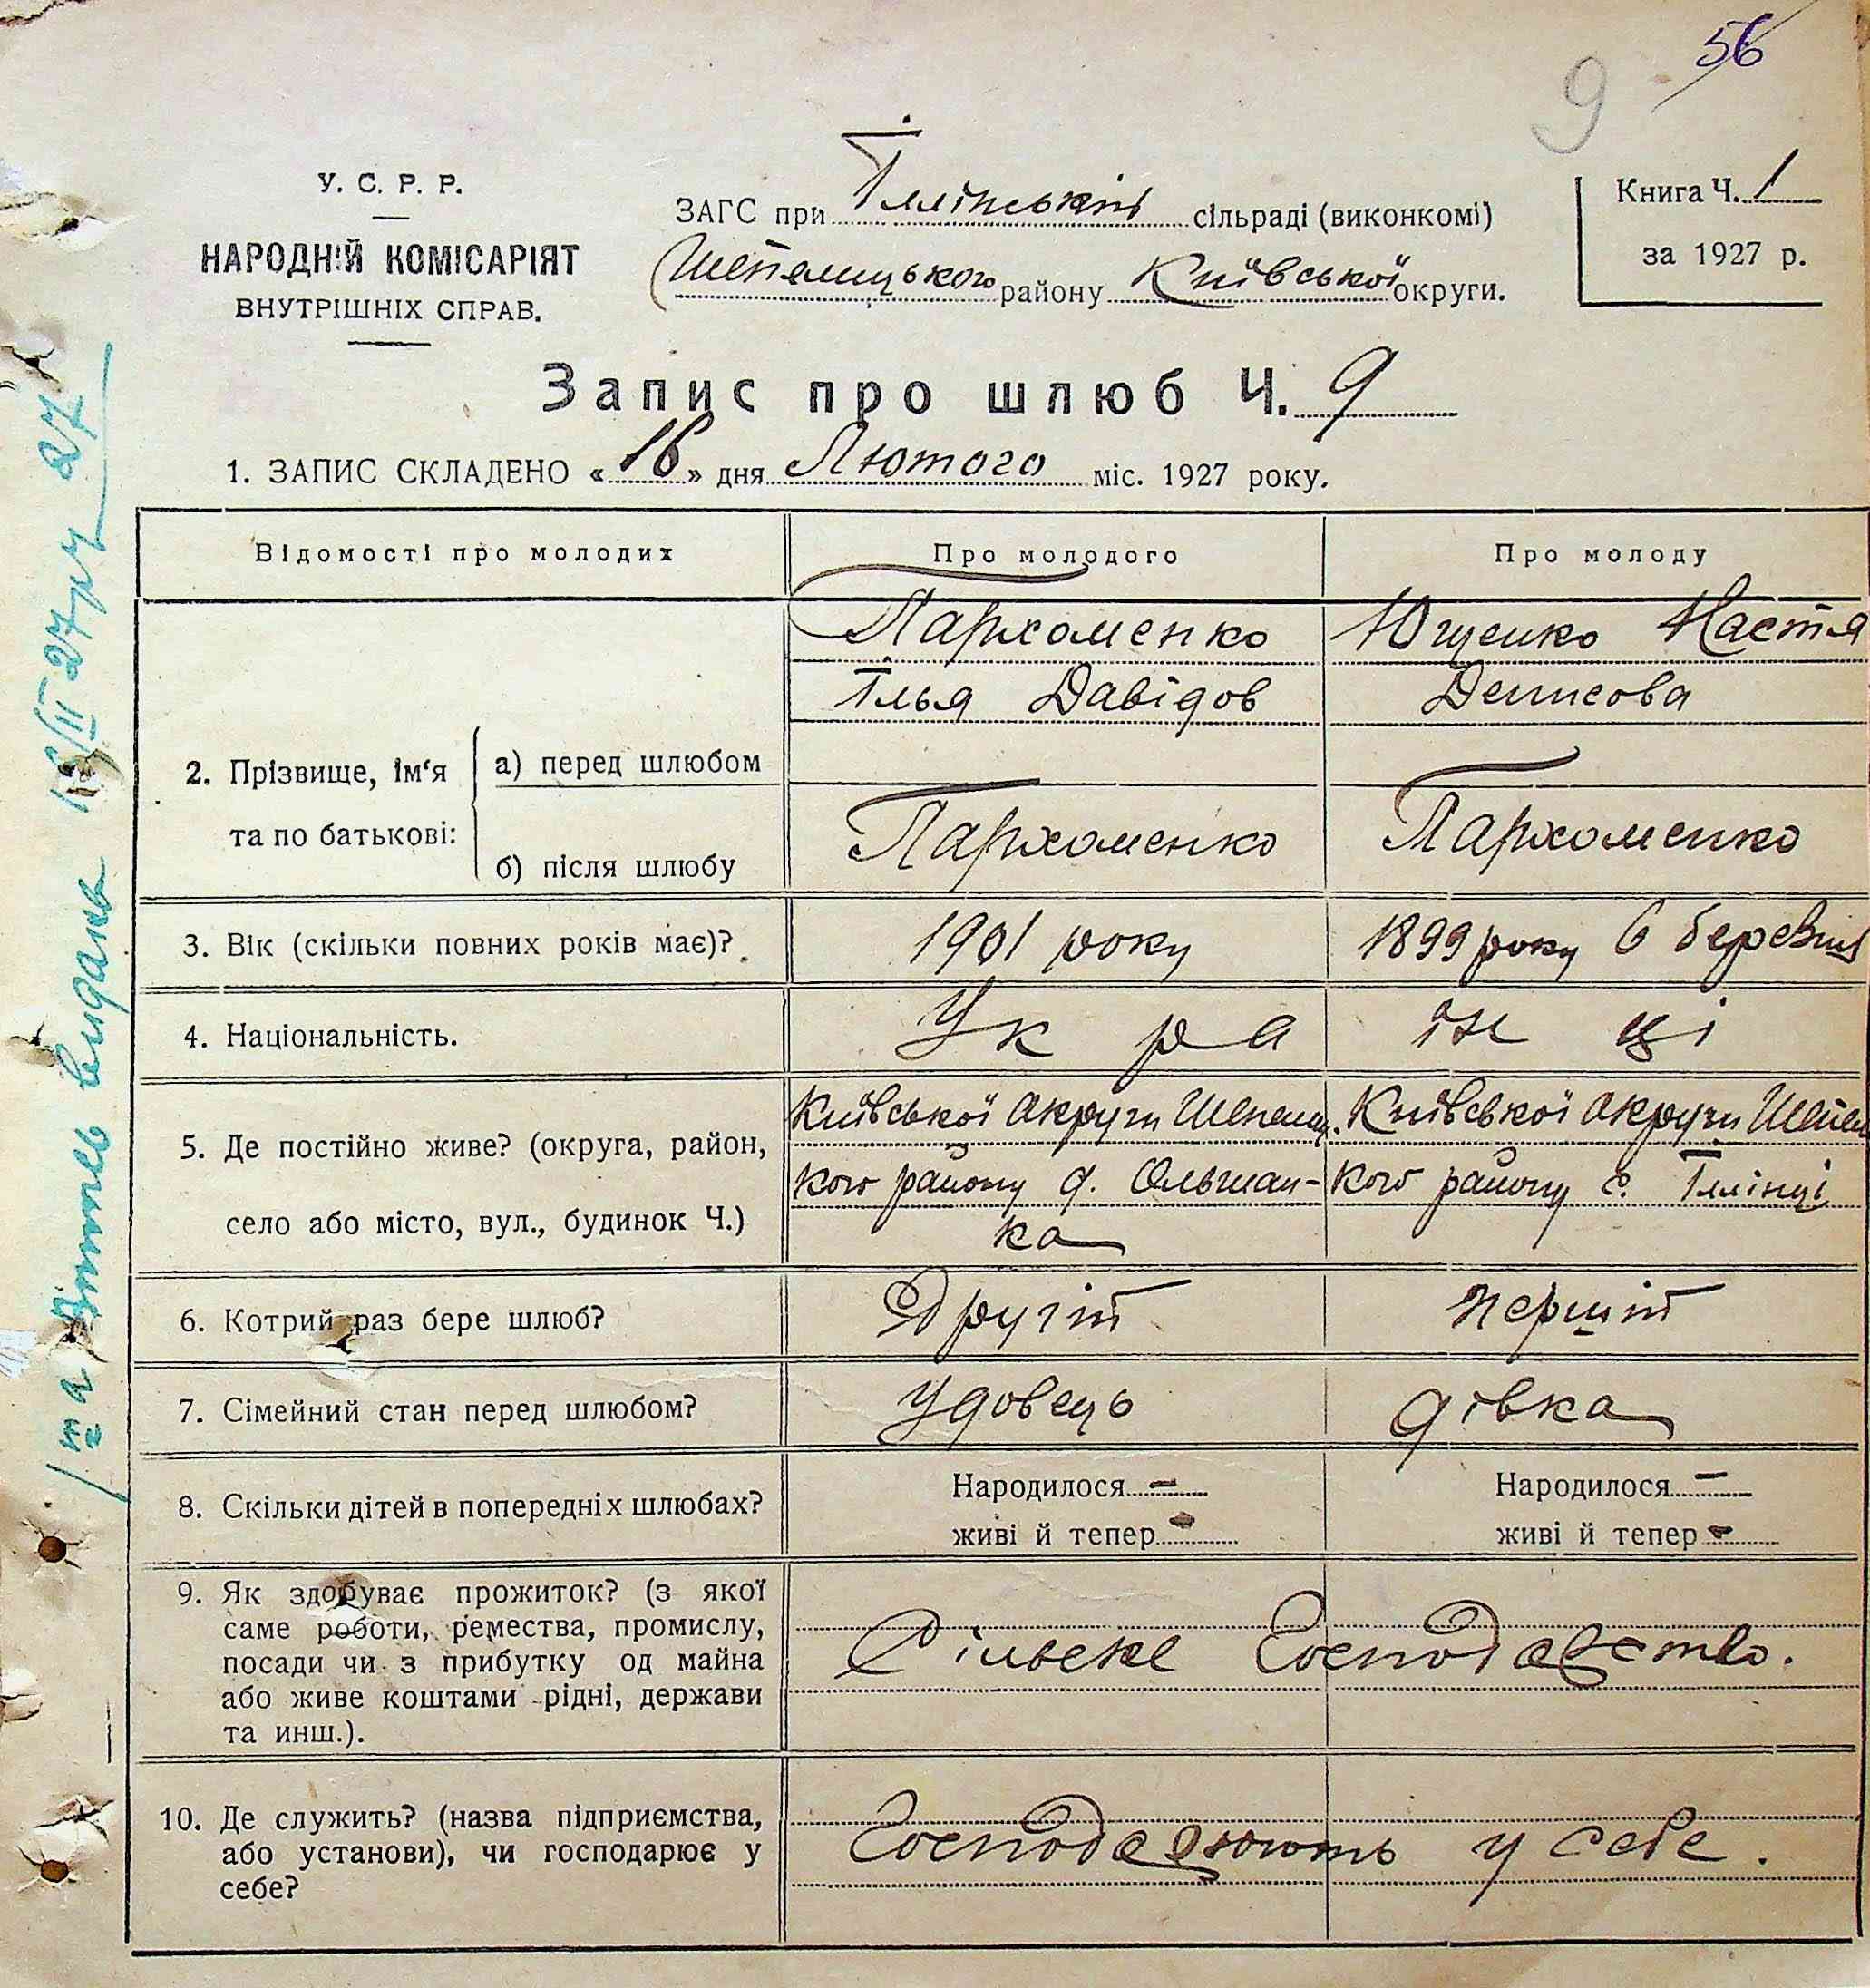 56
9
У. С. Р. Р.
НАРОДНІЙ КОМІСАРІЯТ
ВНУТРІШНІХ СПРАВ.
ЗАГС при Іллінській сільраді (виконкомі)
Шепелицького району Київської округи.
Книга Ч. 1
за 1927 р.
Запис про шлюб Ч. 9
1. ЗАПИС СКЛАДЕНО «16» дня Лютого міс. 1927 року.
Відомості про молодих Про молодого Про молоду
2. Прізвище, ім‘я та по батькові:
а) перед шлюбом
Пархоменко
Ілья Давідов
Ющенко Настя
Денисова
б) після шлюбу
Пархоменко
Пархоменко
3. Вік (скільки повних років має)? 1901 року 1899 року 6 березня
4. Національність. Укра їнці
5. Де постійно живе? (округа, район,
село або місто, вул., будинок Ч.)
Київської Округи Шепелиц.
кого району д. Ольшан-
ка
Київської Округи Шепел
кого району с. Іллінці
6. Котрий раз бере шлюб? Другій Першій
7. Сімейний стан перед шлюбом? Удовець дівка
8. Скільки дітей в попередніх шлюбах?
Народилося —
живі й тепер -
Народилося —
живі й тепер -
9. Як здобуває прожиток? (з якої
саме роботи, ремества, промислу,
посади чи з прибутку од майна
або живе коштами рідні, держави
та инш.).
Сільске Господарство.
10. Де служить? (назва підприємства,
або установи), чи господарює у
себе?
Господарюють у себе.
видань 16/II 27 р